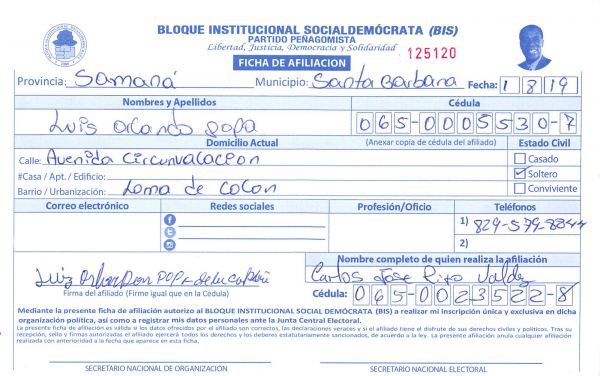 BLOQUE INSTITUCIONAL SOCIALDEMÓCRATA (BIS)
PARTIDO PEÑAGOMISTA
Libertad, Justicia, Democracia y Solidaridad
FICHA DE AFILIACION
125120
Provincia: Samaná Municipio: Santa Barbara Fecha: 1 8 19
Nombres y Apellidos Cédula
Luis Orlando popa 065-0005530-7
Domicilio Actual (Anexar copia de cédula del afiliado) Estado Civil
Calle: Avenida Circunvalacion Casado
#Casa / Apt. / Edificio: Soltero
Barrio / Urbanización: Loma de Colon Conviviente
Correo electrónico Redes sociales Profesión/Oficio Teléfonos
1) 829-579-8844
2)
Nombre completo de quien realiza la afiliación
Carlos Jose
Firma del afiliado (Firme igual que en la Cédula) Cédula: 065-0023522-8
Mediante la presente ficha de afiliación autorizo al BLOQUE INSTITUCIONAL SOCIAL DEMÓCRATA (BIS) a realizar mi inscripción única y exclusiva en dicha
organización política, así como a registrar mis datos personales ante la Junta Central Electoral.
La presente ficha de afiliación es válida si los datos ofrecidos por el afiliado son correctos, las declaraciones veraces y si el afiliado tiene el disfrute de sus derechos civiles y políticos. Tras su
recepción, sello y firmas autorizadas el afiliado ejercerá todos los derechos y los deberes estatutariamente sancionados, de acuerdo a la ley. La presente afiliación anula cualquier afiliación
realizada con anterioridad a la fecha que aparece en esta ficha.
SECRETARIO NACIONAL DE ORGANIZACIÓN SECRETARIO NACIONAL ELECTORAL